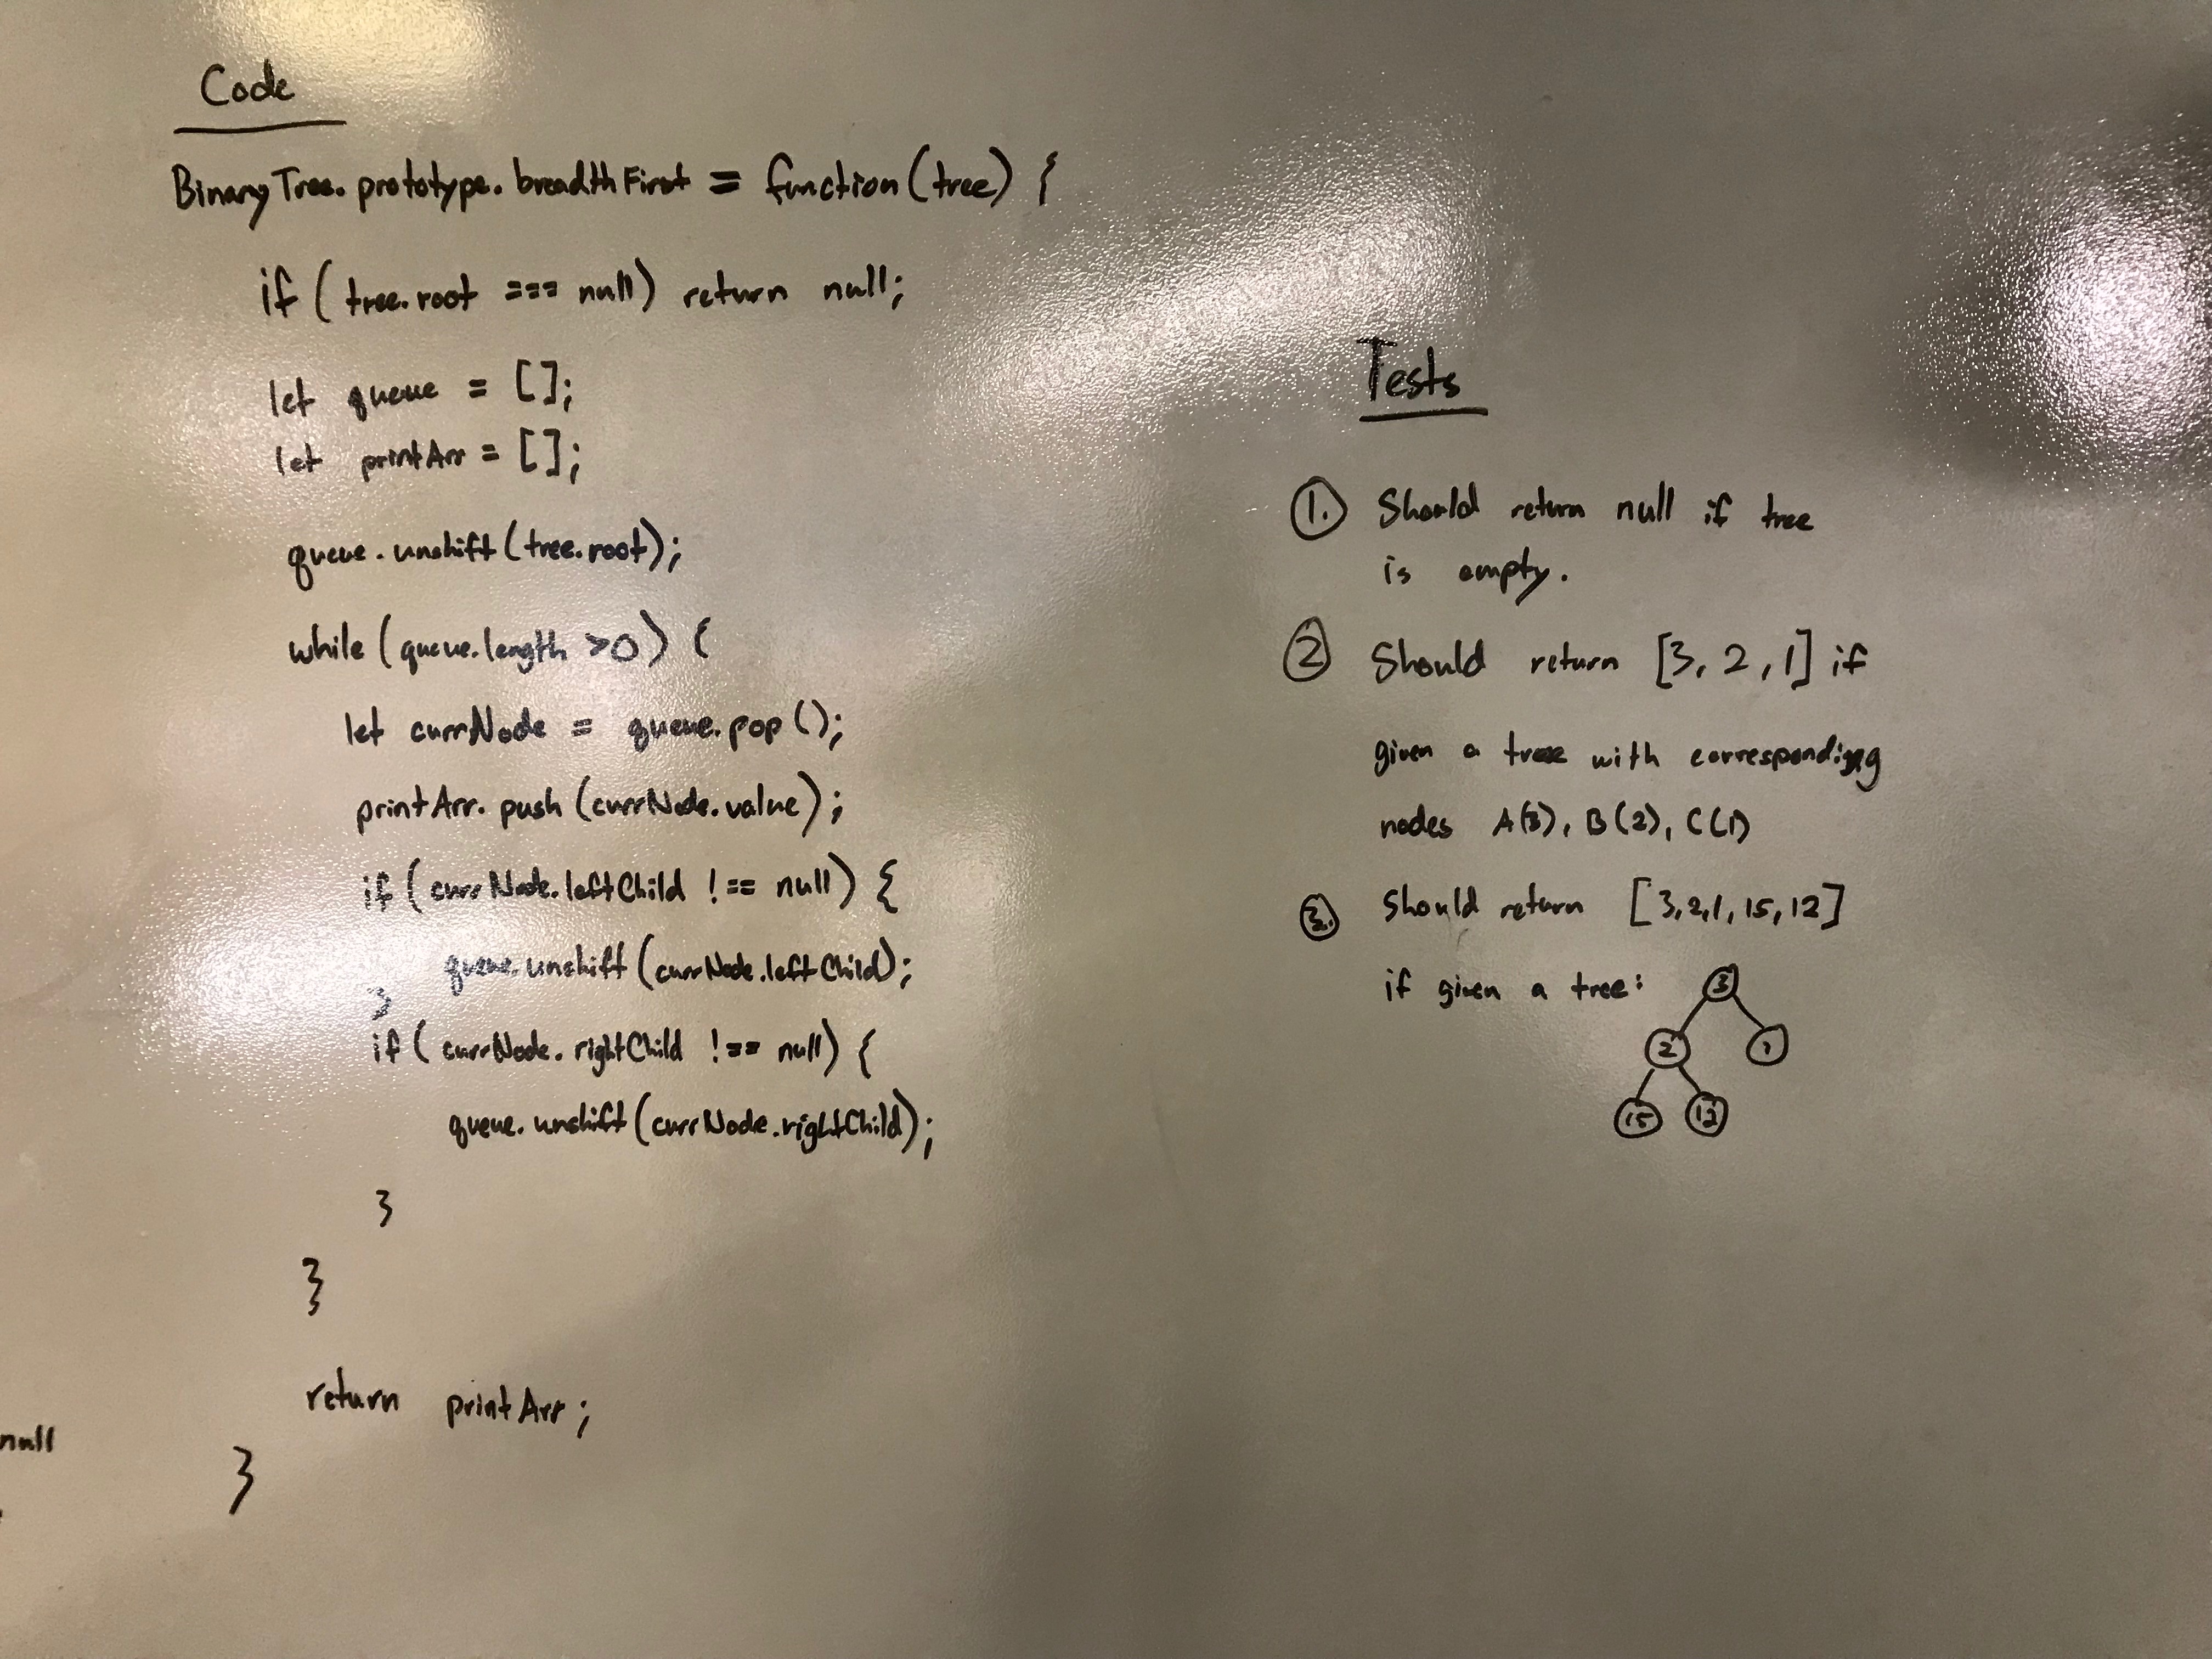 Code
BinaryTree.prototype.breadthFirst = function(tree) {
if (tree.root === null) return null;
let queue = [];
let printArr = [];
queue.unshift(tree.root);
while (queue.length >0) {
let currNode = queue.pop();
printArr.push(currNode.value);
if (currNode.leftChild !== null) {
queue.unshift(currNode.leftChild);
}
if (currNode.rightChild !== null) {
queue.unshift(currNode.rightChild);
}
}
return printArr;
}
null
Tests
1. Should return null if tree
is empty.
2 Should return [3, 2, 1] if
given a tree with
nodes A(3), B(2), C(1)
3. Should return [3,2,1,15,12]
if given a tree:
3
2 1
15 12